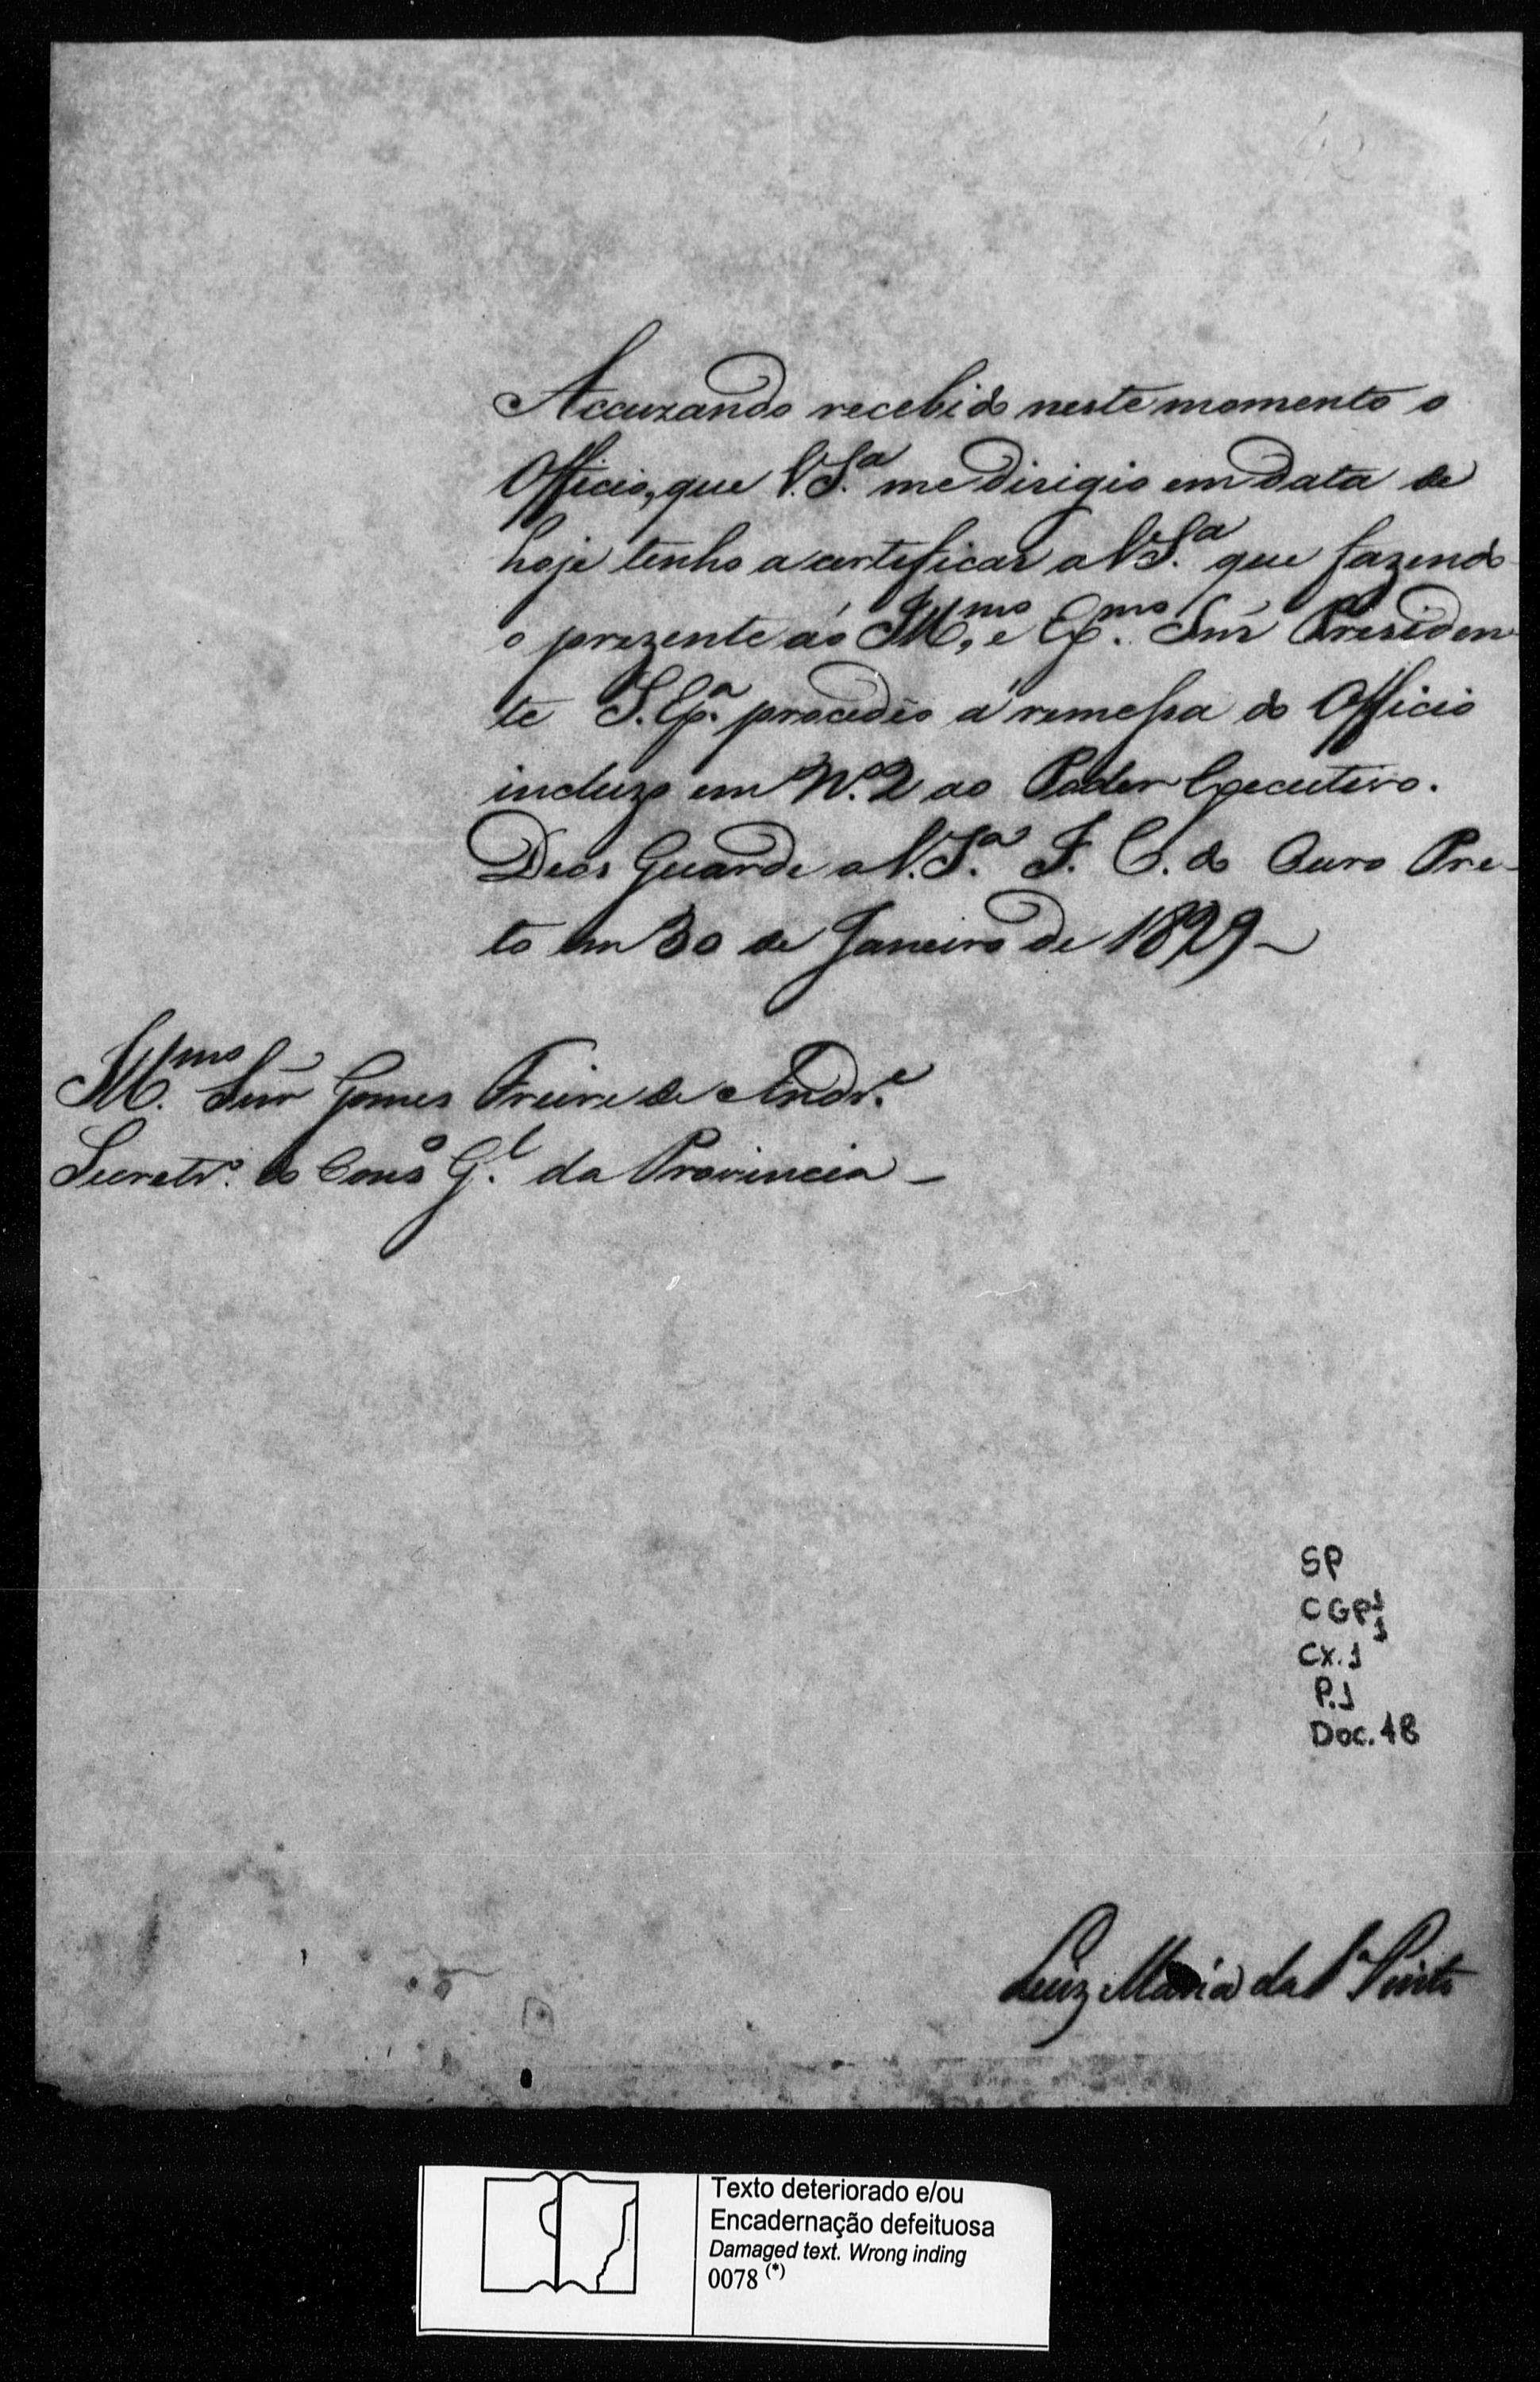 42
Accuzando recebido neste momento o
Officio, que V. S.ª me dirigio em data de
hoje tenho a certificar a V. S.ª que fazendo
o prezente ao Ill.mo, e Ex.mo Snr̃ Presiden
te S. Ex.ª procedeo á remessa do Officio
incluzo em N.º 2 ao Poder Executivo.
Deos Guarde a V. S.ª I. C. do Ouro Pre-
to em 30 de Janeiro de 1829 -
Ill.mo Snr̃ Gomes Freire de Andr.e
Secretr.o do Cons.o G.l da Provincia -
SP
CGP 1/1
Cx. 1
P. 1
Doc. 48
Luiz Maria da S.ª Pinto
Texto deteriorado e/ou
Encadernação defeituosa
Damaged text. Wrong inding
0078 (*)